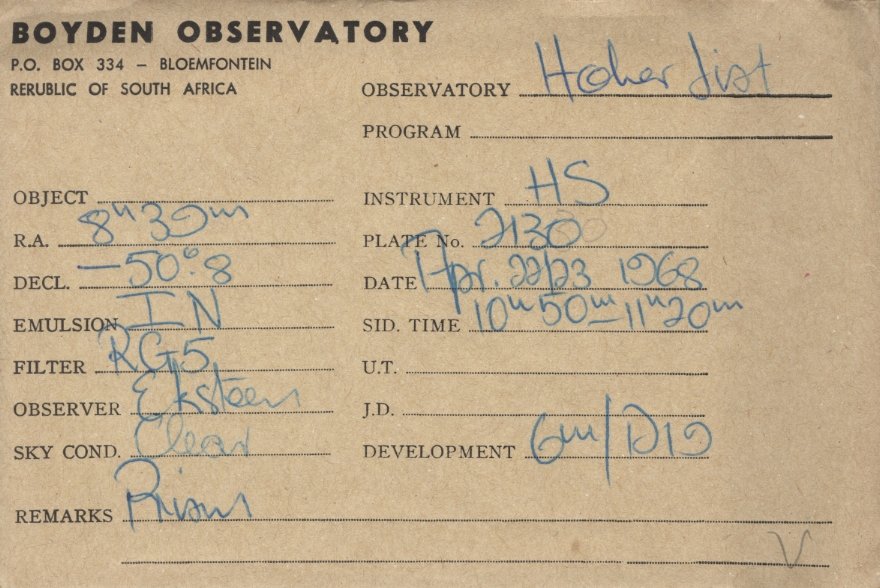 BOYDEN OBSERVATORY
P.O. BOX 334 – BLOEMFONTEIN
RERUBLIC OF SOUTH AFRICA
OBSERVATORY Hoher List
PROGRAM
OBJECT
INSTRUMENT HS
R.A. 8ʰ 30ᵐ
PLATE No. 2130
DECL. −50°.8
DATE Apr. 22/23 1968
EMULSION IN
SID. TIME 10ʰ 50ᵐ–11ʰ 20ᵐ
FILTER RG5
U.T.
OBSERVER Eksteen
J.D.
SKY COND. Clear
DEVELOPMENT 6m/D19
REMARKS
V